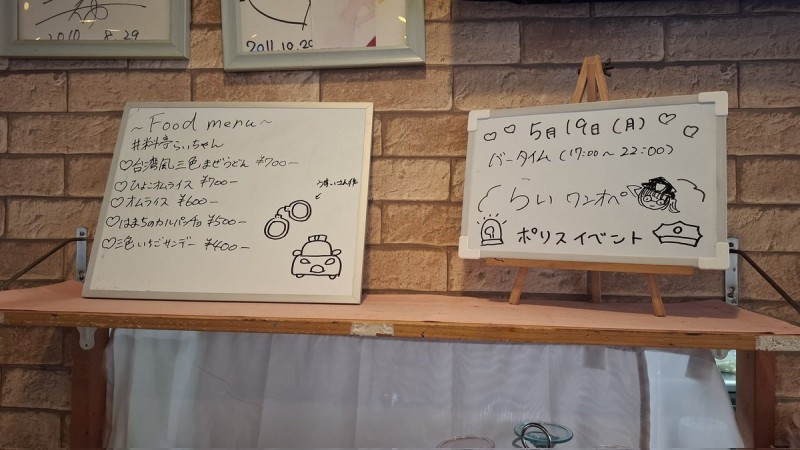 2010 8.29
2011.10.20
~Food menu~
#料亭らぃちゃん
♡台湾風三色まぜうどん ¥700-
♡ひよこオムライス ¥700-
♡オムライス ¥600-
♡はまちのカルパッチョ ¥500-
♡三色いちごサンデー ¥400-
5月19日(月)
バータイム(17:00~22:00)
らぃ ワンオペ
ポリスイベント